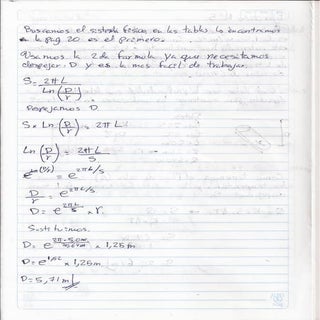 Buscamos el sistema físico en las tablas lo encontramos
en la pag 20 es el primero.
Usamos la 2da formula ya que necesitamos
despejar D y es la mas facil de trabajar.
S = 2πL / Ln (D/r)
Despejamos D
S × Ln (D/r) = 2πL
Ln (D/r) = 2πL / S
e^Ln(D/r) = e^2πL/S
D/r = e^2πL/S
D = e^2πL/S × r.
Sustituimos.
× 1,25m
D = e^1,52 × 1,25m
D = 5,71m